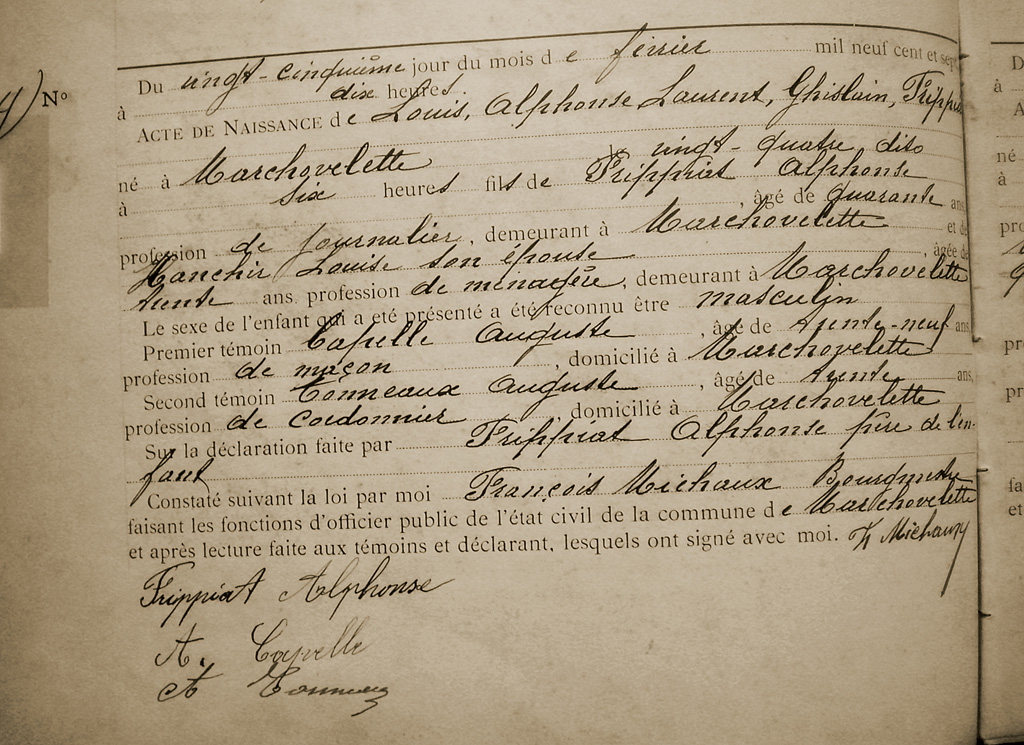 4) N°
Du vingt-cinquième jour du mois de février mil neuf cent et sept
à dix heures.
ACTE DE NAISSANCE de Louis, Alphonse Laurent, Ghislain, Frippiat
né à Marchovelette vingt-quatre dito
à six heures fils de Frippiat Alphonse
, âgé de quarante ans
profession de journalier, demeurant à Marchovelette et de
Hanchir Louise son épouse , âgée de
trente ans, profession de ménagère, demeurant à Marchovelette
Le sexe de l'enfant qui a eté présenté a été reconnu être masculin
Premier témoin Capelle Auguste , âgé de trente-neuf ans
profession de maçon , domicilié à Marchovelette
Second témoin Tonneaux Auguste , âgé de trente ans,
profession de cordonnier , domicilié à Marchovelette
Sur la déclaration faite par Frippiat Alphonse père de l'en-
fant
Constaté suivant la loi par moi François Michaux Bourgmestre
faisant les fonctions d'officier public de l'état civil de la commune de Marchovelette
et après lecture faite aux témoins et déclarant, lesquels ont signé avec moi. F Michaux
Frippiat Alphonse
A. Capelle
A Tonneaux